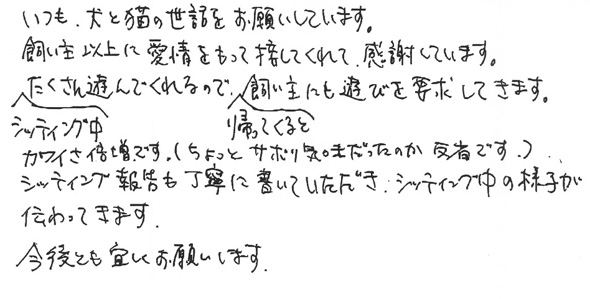 いつも、犬と猫の世話をお願いしています。
飼い主以上に愛情をもって接してくれて、感謝しています。
たくさん遊んでくれるので、飼い主にも遊びを要求してきます。
シッティング中 帰ってくると
カワイさ倍増です。(ちょっとサボり気味だったのか 反省です。)
シッティング報告も丁寧に書いていただき、シッティング中の様子が
伝わってきます。
今後とも宜しくお願いします。